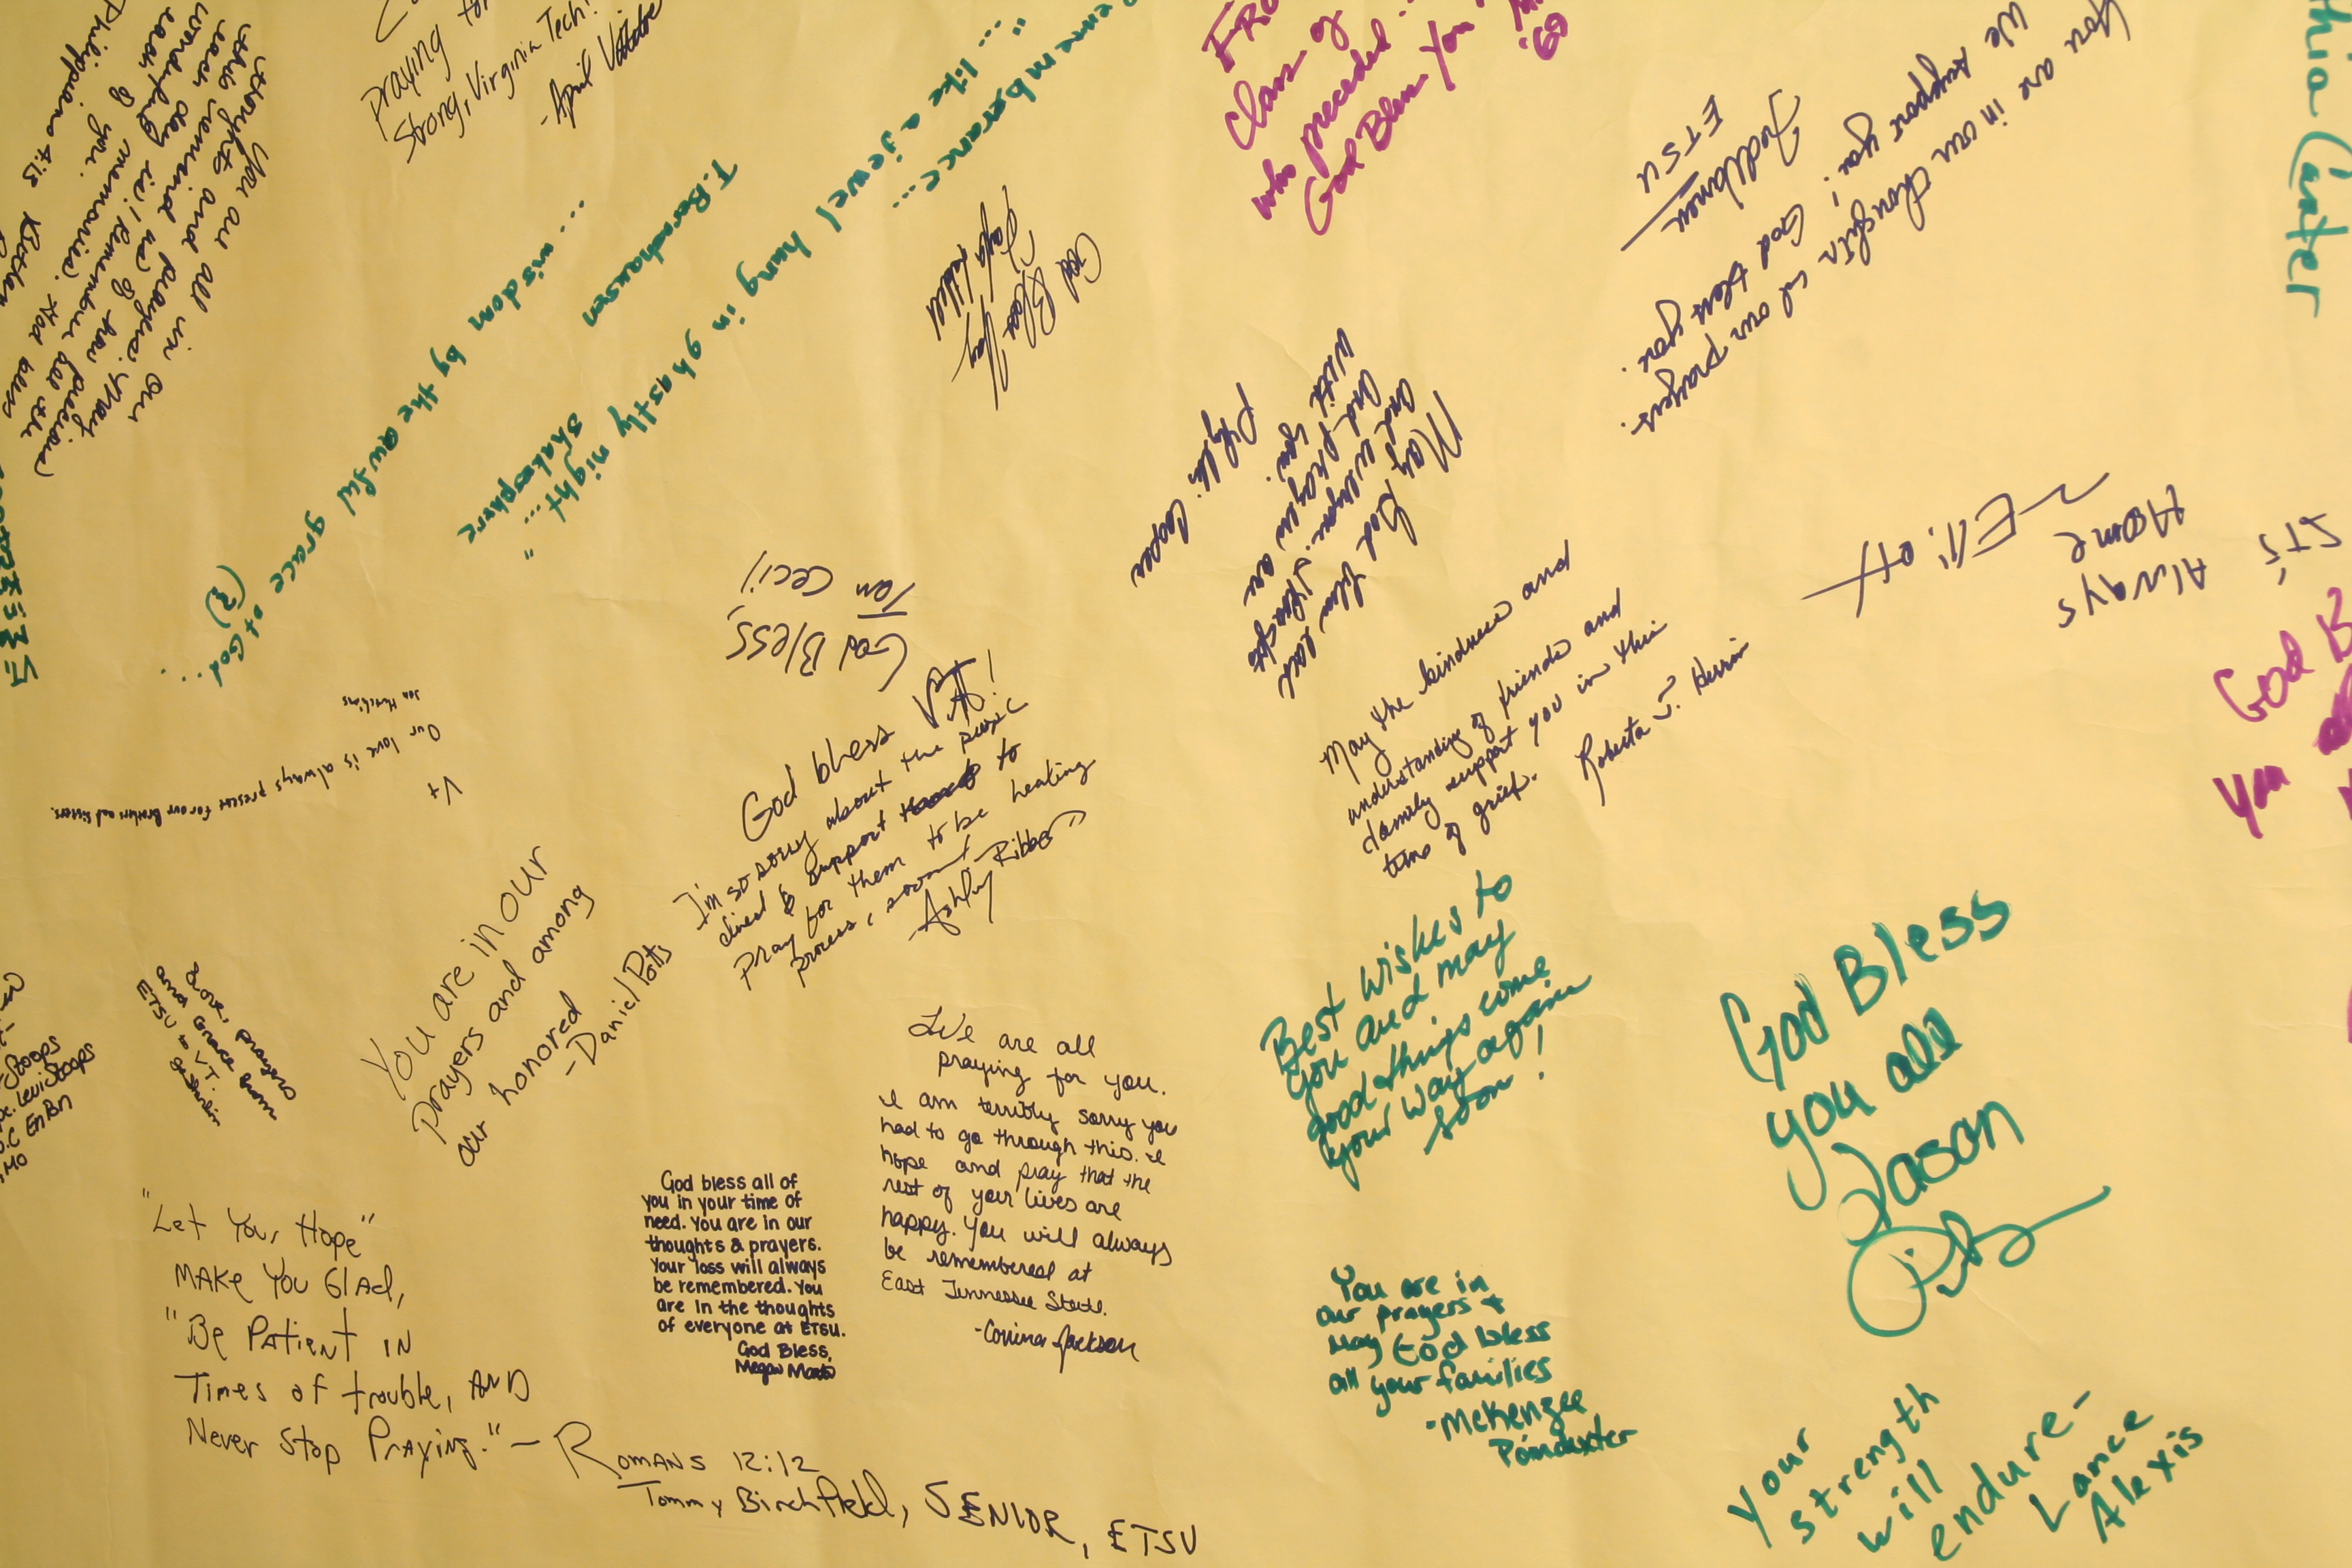 praying for
Strong, Virginia Tech!
-April
you are all in our
thoughts and prayers. May
this remind us of how precious
each day is! Remember the
wonderful memories. God bless
each of you.
Philippians 4:13
remembrance...
"... like a jewel hung in ghastly night ..."
Shakesphere
... wisdom by the awful grace of God...
(?)
T. Bernhausen
God
Bless
Class of
who preceded
God Bless You
'69
You are in our thoughts and our prayers.
We support you! God bless you.
ETSU
thia Carter
May God bless each
and everyone. Thoughts
and prayers are
with you.
Phyllis Cooper
Elliott
Always
Home
God Bless,
Tom Cecil
VT
Our love is always present for our Brothers and Sisters.
Jon Hutchins
God bless VT!
I'm so sorry about the music
Pray for them to be healing
process, soon!
-Ashley Ribbo
May the kindness and
understanding of friends and
family support you in this
time of grief.
Roberta J. Herrin
God B
You
You are in our
prayers and among
our honored
-Daniel Potts
Love, prayers
and Grace from
ETSU to V.T.
Best wishes to
you and may
good things come
your way again
soon!
God Bless
you all
Jason
We are all
praying for you.
I am terribly sorry you
had to go through this. I
hope and pray that the
rest of your lives are
happy. You will always
be remembered at
East Tennessee State.
-Corrina Jackson
God bless all of
you in your time of
need. You are in our
thoughts & prayers.
Your loss will always
be remembered. You
are in the thoughts
of everyone at ETSU.
God Bless,
Megan
"Let Your Hope"
MAKe You Glad,
"Be Patient IN
Times of trouble, AND
Never Stop Praying." - Romans 12:12
Tommy Birchfield, SENIOR, ETSU
You are in
our prayers +
may God bless
all your families
-McKenzee
Poindexter
Your
strength
will
endure-
Lance
Alexis